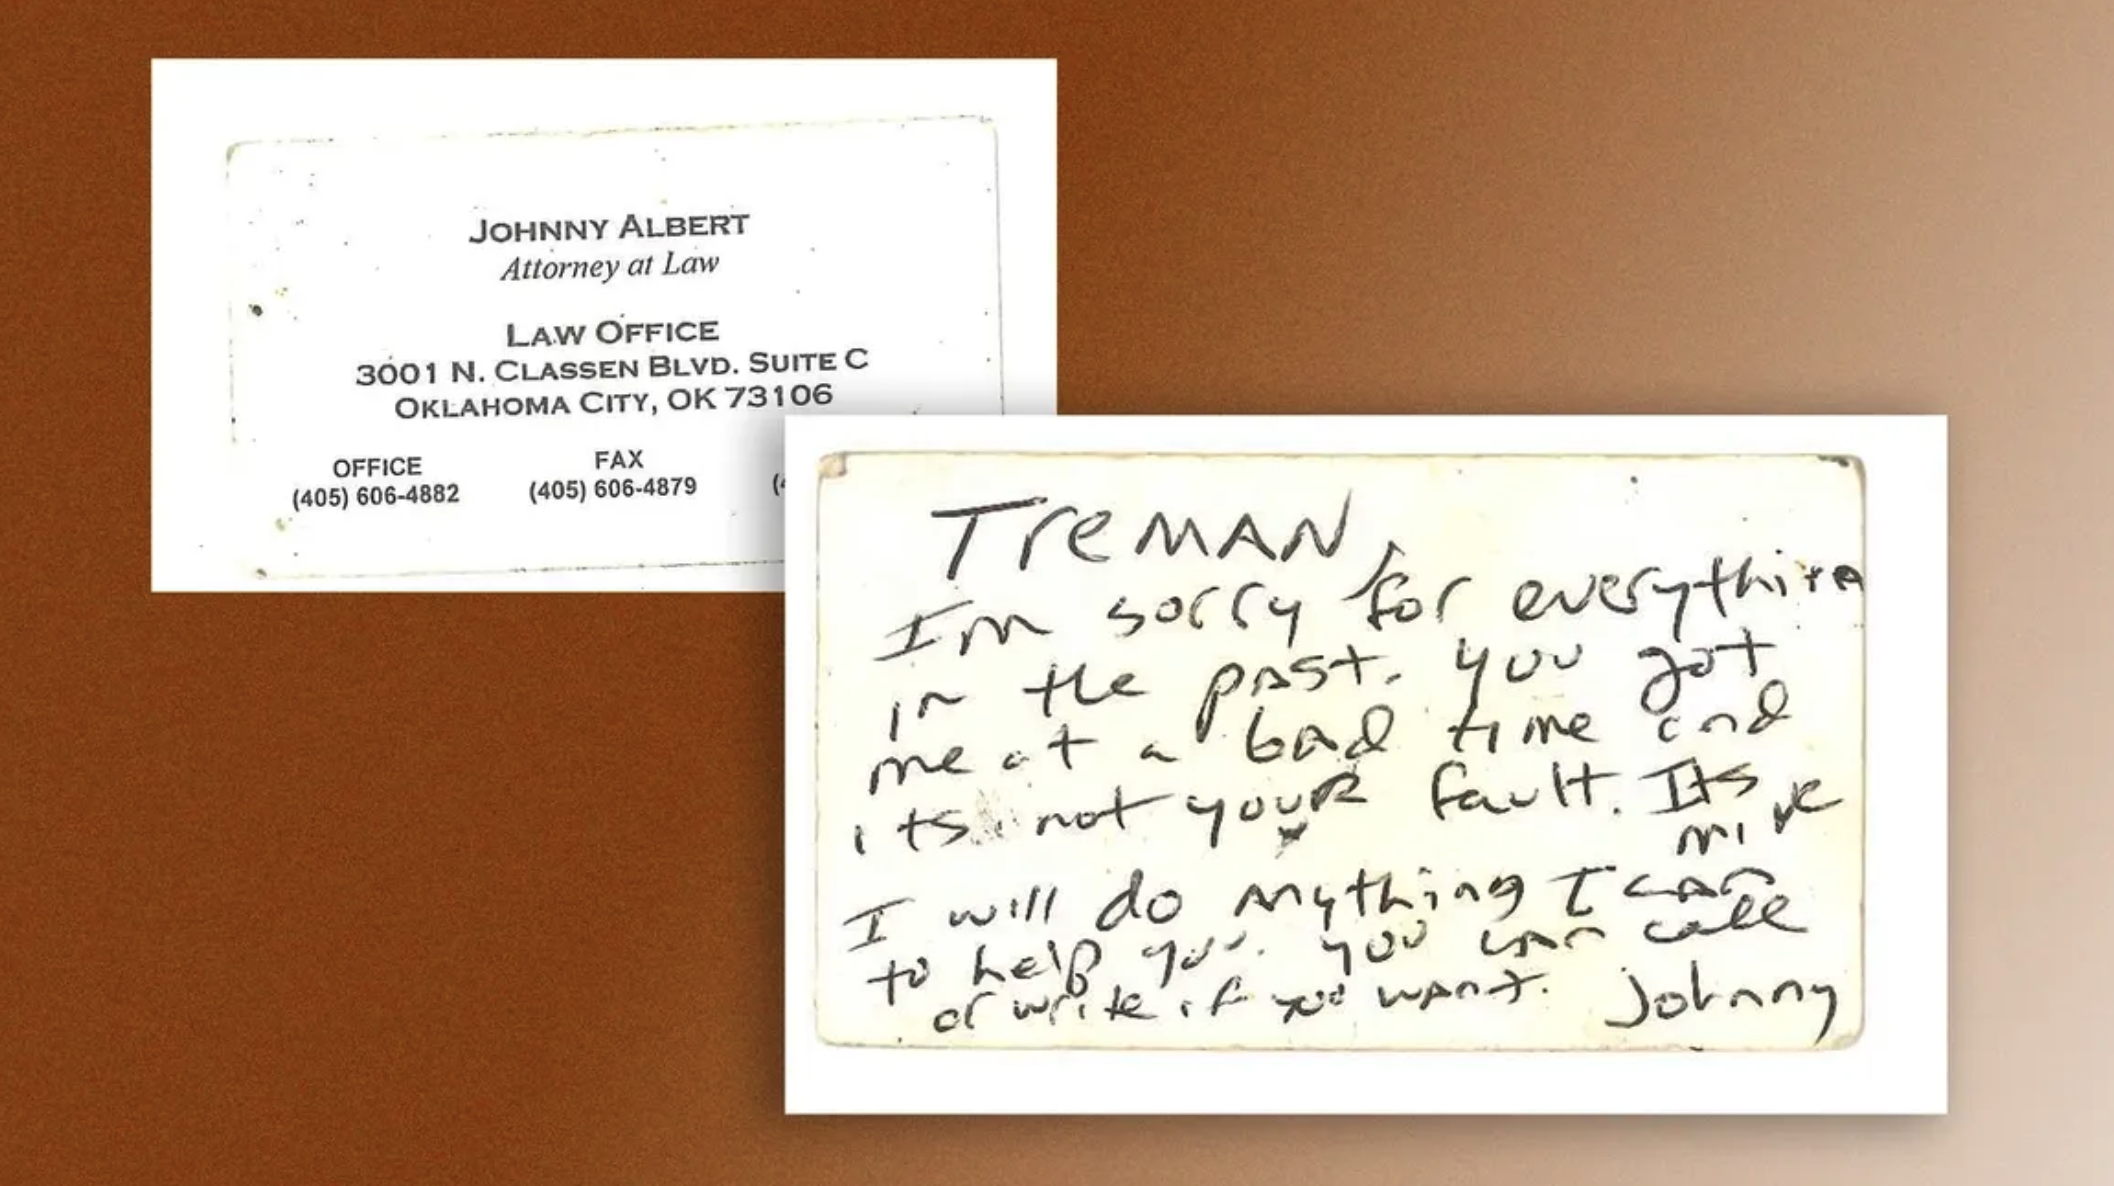 JOHNNY ALBERT
Attorney at Law
LAW OFFICE
3001 N. CLASSEN BLVD. SUITE C
OKLAHOMA CITY, OK 73106
OFFICE FAX
(405) 606-4882 (405) 606-4879 (4
TreMAN,
Im sorry for everything
in the past. you got
me at a bad time and
its not youR fault. Its
mine
I will do anything I can
to help you. you can call
or write if you want. Johnny